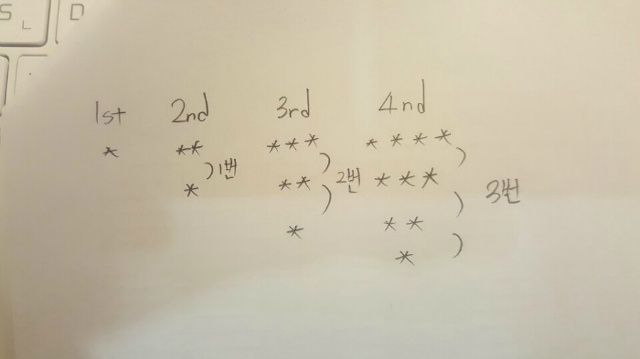 S L D
1st 2nd 3rd 4nd
* ** *** ****
) 1번 ) )
* ** 2번 *** 3번
) )
* **
)
*